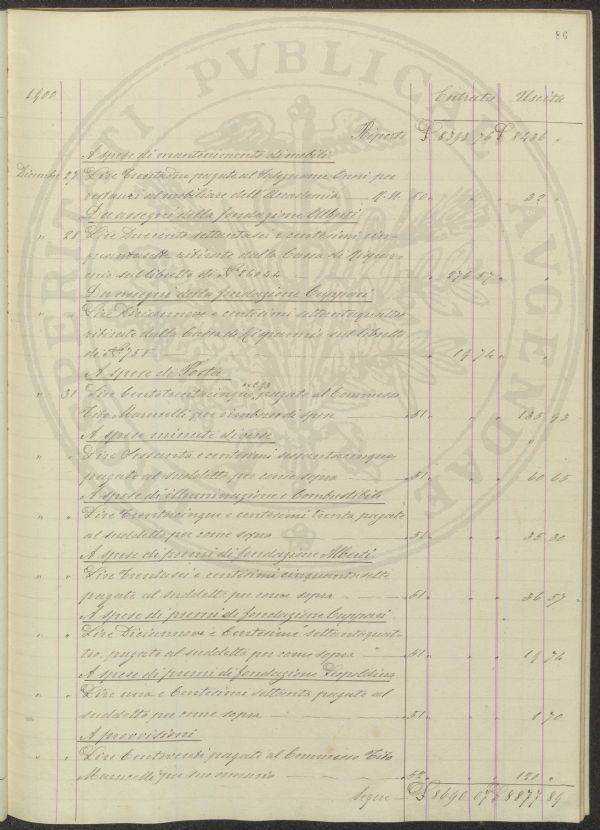 86
1900
Entrata Uscita
Riporto £ 8393 76 £ 8436 "
A spese di mantenimento di mobili
Dicembre 27 Lire Trentadue pagate al Falegname per
restauri al mobiliare dell'Accademia N.M. 50 " " 32 "
Da assegni della fondazione Alberti
" 28 Lire Duecento settantasei e centesimi cin-
quantasette ritirate dalla Cassa di Rispar-
mio sul libretto di N° 26044 " 276 57 " "
Da assegni della fondazione Cuppari
" " Lire Diciannove e centesimi settantaquattro
ritirate dalla Cassa di Risparmio sul libretto
di N° 758 " 19 74 " "
A spese di Posta
" 31 Lire Centotrentacinque, e c. 93 pagate al Commesso
Tito Marucelli per rimborso di spese 51 " " 135 93
A spese minute diverse
" " Lire Sessanta e centesimi sessantacinque
pagate al suddetto per come sopra 51 " " 60 65
A spese di illuminazione e Combustibile
" " Lire Trentacinque e centesimi trenta pagate
al suddetto per come sopra 51 " " 35 30
A spese di premi di fondazione Alberti
" " Lire Trentasei e centesimi cinquantasette
pagate al suddetto per come sopra 51 " " 36 57
A spese di premi di fondazione Cuppari
" " Lire Diciannove e Centesimi settantaquat-
tro, pagate al suddetto per come sopra 51 " " 19 74
A spese di premi di fondazione Leopoldina
" " Lire una e Centesimi settanta pagate al
suddetto per come sopra 51 " " 1 70
A provvisioni
" " Lire Centoventi pagate al Commesso Tito
Marucelli per suo onorario 52 " " 120 "
Segue £ 8690 07 £ 8877 89
PROSPERITATI PUBLICAE AUGENDAE